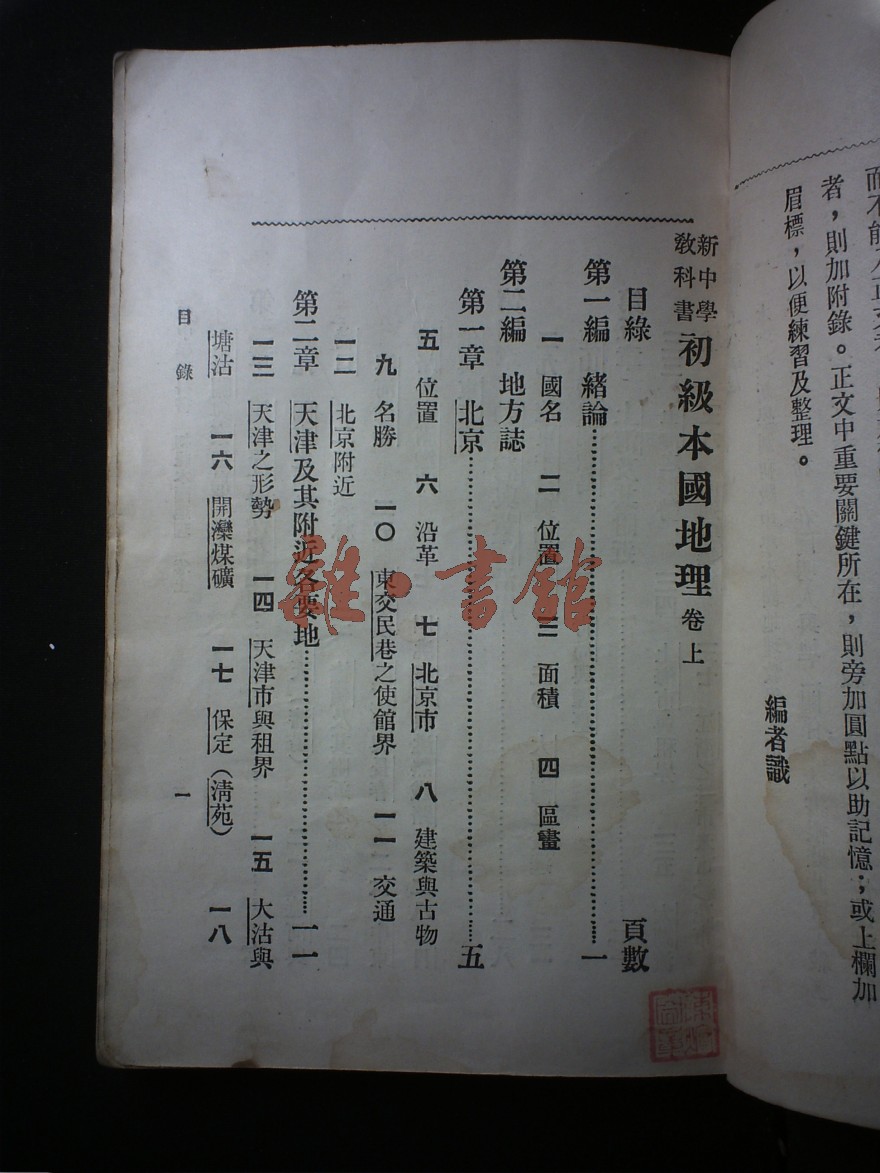 者，則加附錄。正文中重要關鍵所在，則旁加圓點以助記憶；或上欄加
眉標，以便練習及整理。
編者識
新中學教科書 初級本國地理 卷上
目錄 頁數
第一編 緒論 一
一 國名 二 位置 三 面積 四 區畫
第二編 地方誌
第一章 北京 五
五 位置 六 沿革 七 北京市 八 建築與古物
九 名勝 一〇 東交民巷之使館界 一一 交通
一二 北京附近
第二章 天津及其附近各要地 一一
一三 天津之形勢 一四 天津市與租界 一五 大沽與
塘沽 一六 開灤煤礦 一七 保定（淸苑） 一八
目錄 一
雜·書館